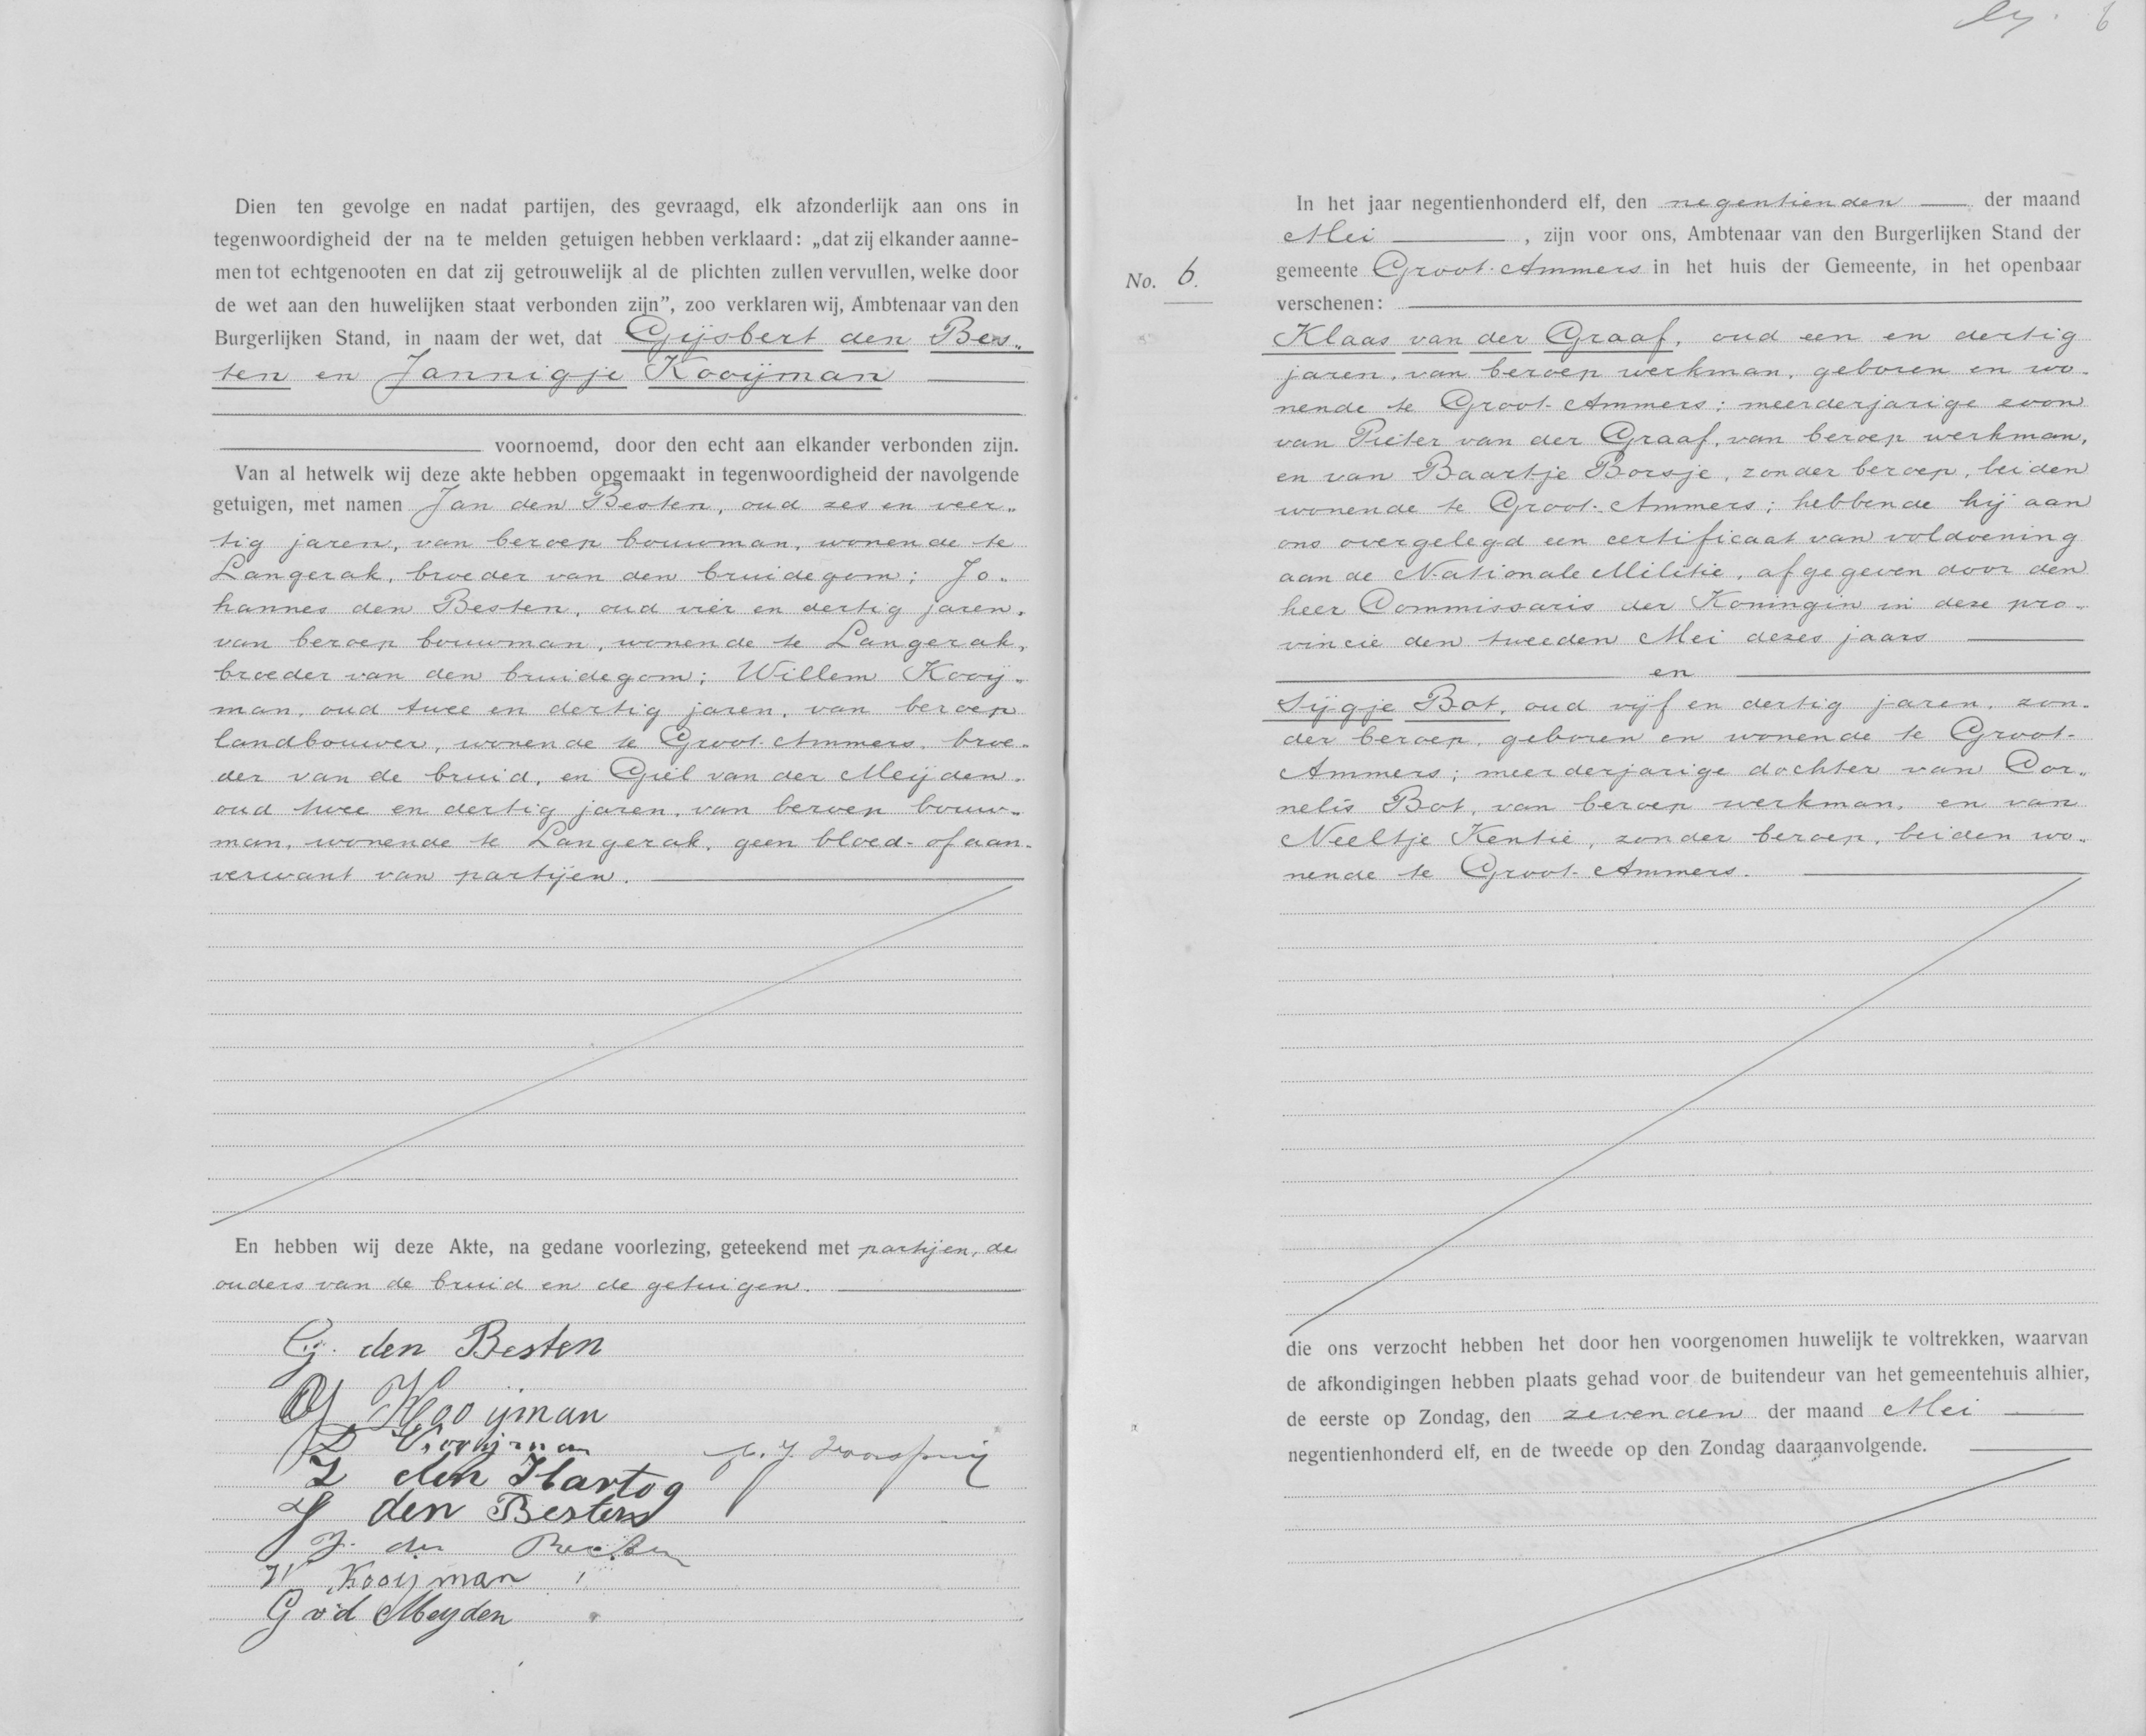 Dien ten gevolge en nadat partijen, des gevraagd, elk afzonderlijk aan ons in
tegenwoordigheid der na te melden getuigen hebben verklaard: „dat zij elkander aanne-
men tot echtgenooten en dat zij getrouwelijk al de plichten zullen vervullen, welke door
de wet aan den huwelijken staat verbonden zijn”, zoo verklaren wij, Ambtenaar van den
Burgerlijken Stand, in naam der wet, dat Gijsbert den Bes„
ten en Jannigje Kooijman
voornoemd, door den echt aan elkander verbonden zijn.
Van al hetwelk wij deze akte hebben opgemaakt in tegenwoordigheid der navolgende
getuigen, met namen Jan den Besten, oud zes en veer„
tig jaren, van beroep bouwman, wonende te
Langerak, broeder van den bruidegom; Jo„
hannes den Besten, oud vier en dertig jaren,
van beroep bouwman, wonende te Langerak,
broeder van den bruidegom; Willem Kooij„
man, oud twee en dertig jaren, van beroep
landbouwer, wonende te Groot-Ammers, broe„
der van de bruid, en Giel van der Meijden,
oud twee en dertig jaren, van beroep bouw„
man, wonende te Langerak, geen bloed- of aan„
verwant van partijen.
En hebben wij deze Akte, na gedane voorlezing, geteekend met partijen, de
ouders van de bruid en de getuigen.
G. den Besten
J Kooijman
Kooijman
den Hartog
J den Besten
J. den Besten
W Kooijman
G v d Meyden
6
No. 6.
In het jaar negentienhonderd elf, den negentienden der maand
Mei, zijn voor ons, Ambtenaar van den Burgerlijken Stand der
gemeente Groot-Ammers in het huis der Gemeente, in het openbaar
verschenen:
Klaas van der Graaf, oud een en dertig
jaren, van beroep werkman, geboren en wo„
nende te Groot-Ammers; meerderjarige zoon
van Pieter van der Graaf, van beroep werkman,
en van Baartje Borsje, zonder beroep, beiden
wonende te Groot-Ammers; hebbende hij aan
ons overgelegd een certificaat van voldoening
aan de Nationale Militie, afgegeven door den
heer Commissaris der Koningin in deze pro„
vincie den tweeden Mei dezes jaars
en
Sijgje Bot, oud vijf en dertig jaren, zon„
der beroep, geboren en wonende te Groot-
Ammers; meerderjarige dochter van Cor„
nelis Bot, van beroep werkman, en van
Neeltje Kentie, zonder beroep, beiden wo„
nende te Groot-Ammers.
die ons verzocht hebben het door hen voorgenomen huwelijk te voltrekken, waarvan
de afkondigingen hebben plaats gehad voor de buitendeur van het gemeentehuis alhier,
de eerste op Zondag, den zevenden der maand Mei
negentienhonderd elf, en de tweede op den Zondag daaraanvolgende.